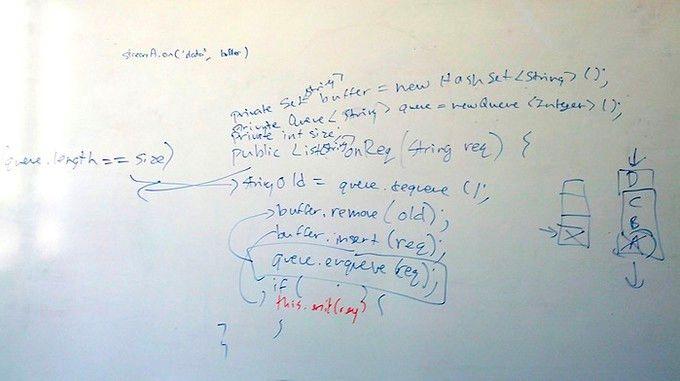 streamA.on('data', buffer)
private Set<String> buffer = new HashSet<String>();
private Queue<String> queue = new Queue<Integer>();
private int size;
public List<String> onReq(String req) {
queue.length == size)
String old = queue.dequeue();
buffer.remove(old);
buffer.insert(req);
queue.enqueue(req);
if ( . ) {
this.emit(req)
}
}
D
C
B
A